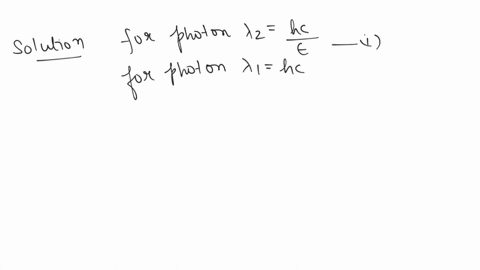 Solution for photon λ2 = hc/E —(i)
for photon λ1 = hc